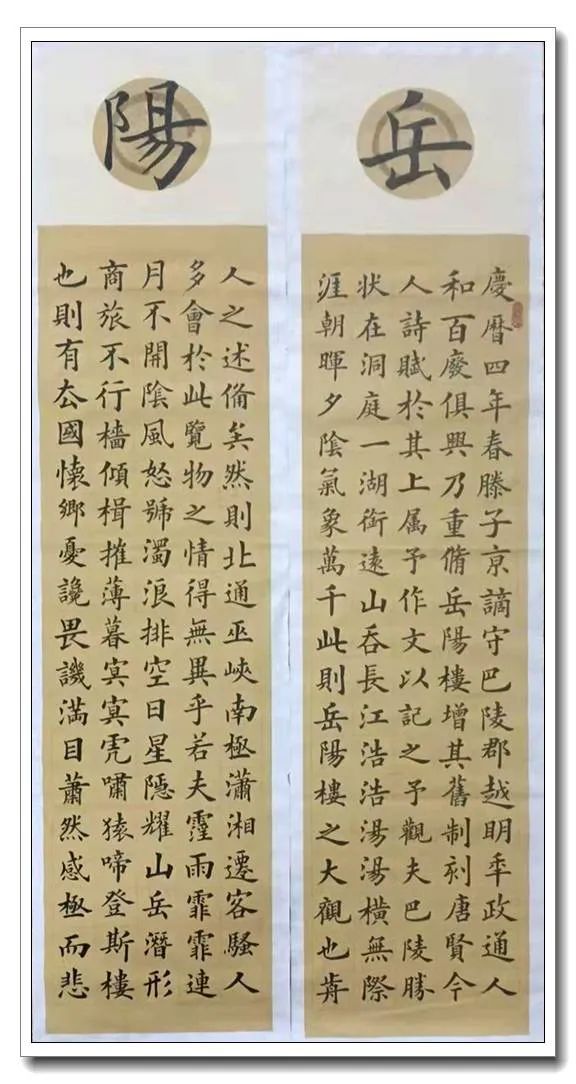 岳
慶暦四年春滕子亰謫守巴陵郡越明年政通人
和百廢俱興乃重脩岳陽樓增其舊制刻唐賢今
人詩賦於其上属予作文以記之予觀夫巴陵勝
状在洞庭一湖銜遠山吞長江浩浩湯湯橫無際
涯朝暉夕陰氣象萬千此則岳陽樓之大觀也前
陽
人之述備矣然則北通巫峽南極瀟湘遷客騷人
多會於此覽物之情得無異乎若夫霪雨霏霏連
月不開陰風怒號濁浪排空日星隱耀山岳潛形
商旅不行檣傾楫摧薄暮冥冥虎嘯猿啼登斯樓
也則有去國懷鄉憂讒畏譏滿目蕭然感極而悲